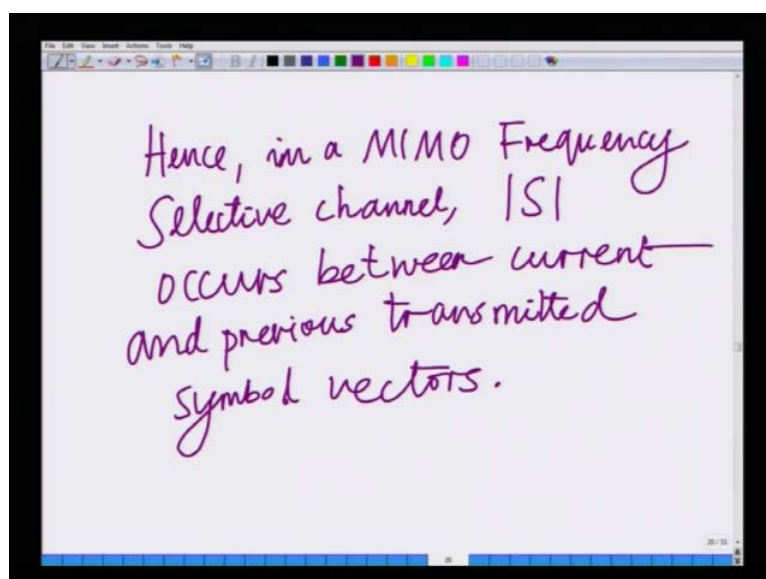 File Edit View Insert Actions Tools Help
B I
Hence, in a MIMO Frequency
Selective channel, ISI
occurs between current
and previous transmitted
symbol vectors.